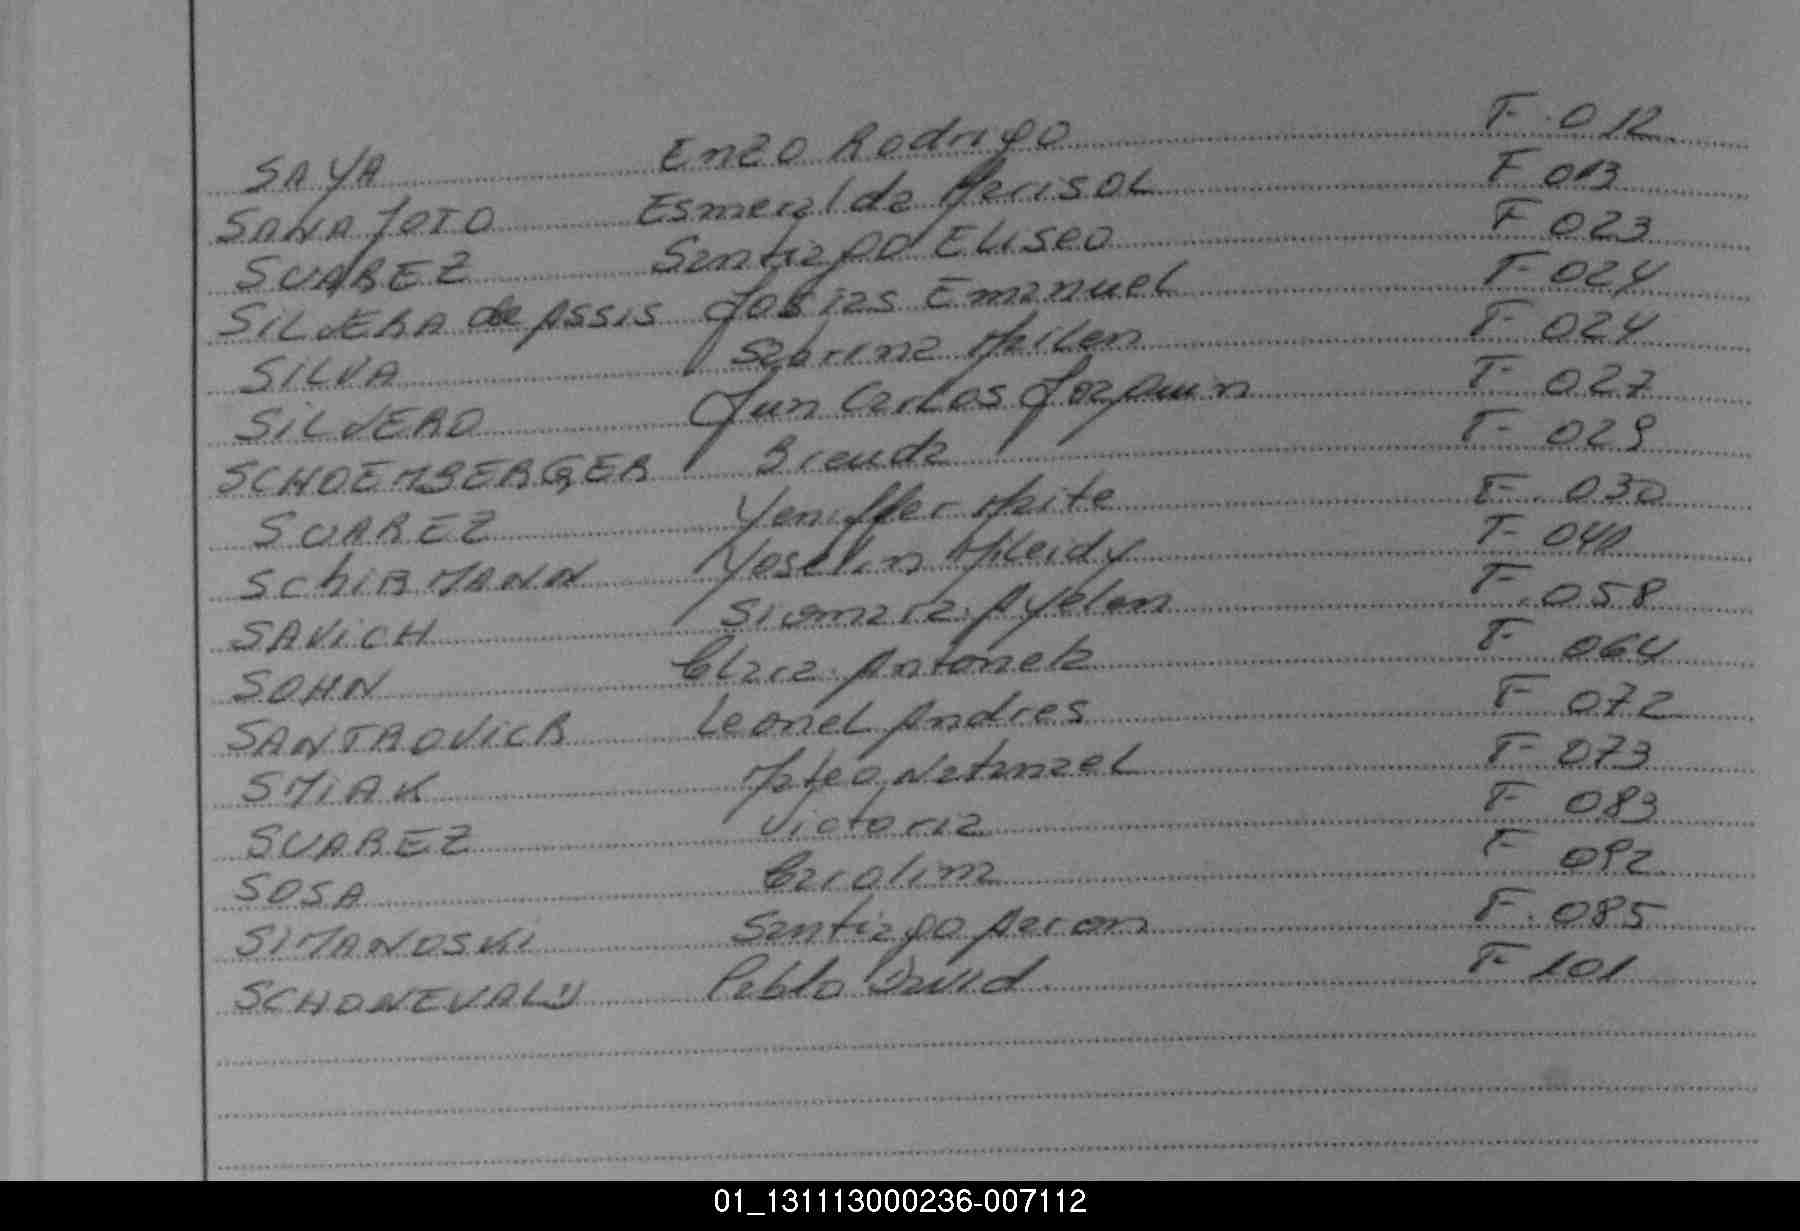 SAYA Enzo Rodrigo F. 012
SANAJOTO Esmeralda Marisol F 013
SUAREZ Santiago Eliseo F 023
SILVERA de Assis Josias Emanuel F 024
SILVA Sabrina Mailen F 024
SILVERO Jun Carlos Joaquin F 027
SCHOEMBERGER Brenda F 029
SUAREZ Yeniffer Maite F. 030
SchiRMANN Yoselin Mileidy F 041
SAViCH Siomara Ayelen F. 058
SOHN Clara Antonela F 064
SANTROViCR Leonel Andres F 072
SMiAK Mateo Natanael F 073
SUAREZ Victoria F 083
SOSA Carolina F 092
SIMANOSKI Santiago Aaron F. 085
SCHONEVALD Pablo David F 101
01_131113000236-007112